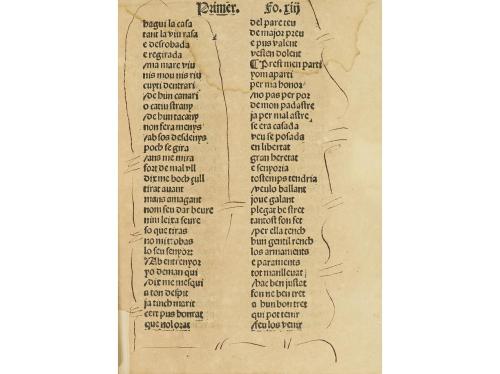 Primer. Fo. xiij
hagui la casa
tant la viu rasa
e desrobada
e regirada
ma mare viu
nis mou nis riu
cuyti dentrari
de hun canari
o catiu strany
de hun tacany
non fera menys
ab sos desdenys
poch se gira
ans me mira
fort de mal vll
dix me hoch full
tirat auant
mans amagant
nom seu dar heure
nim leixa seure
so que tiras
no mi trobas
lo seu senyor
Ab entrenyor
yo deman qui
dix me mesqui
a ton despit
ja tinch marit
cert pus honrat
que nol orat
del pare teu
de major preu
e pus valent
vesten dolent
Prest men parti
yom aparti
per ma honor
no pas per por
de mon padastre
ja per mal astre
se era casada
veu se posada
en libertat
gran heretat
e senyoria
tostemps tendria
veulo ballant
joue galant
plegar he stret
tantost fon fet
per ella tench
hun gentil rench
los armaments
e paraments
tot manlleuat
hac ben justat
fon ne ben tret
a hun bon tret
qui pot tenir
feu los venir